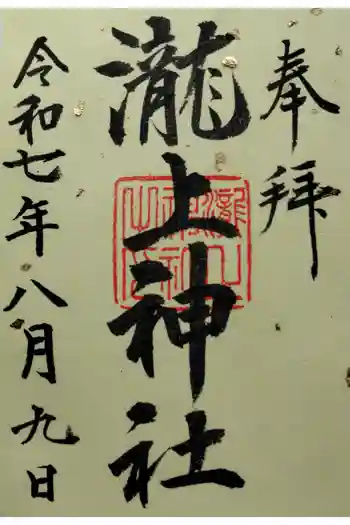 奉拝
瀧上神社
令和七年八月九日